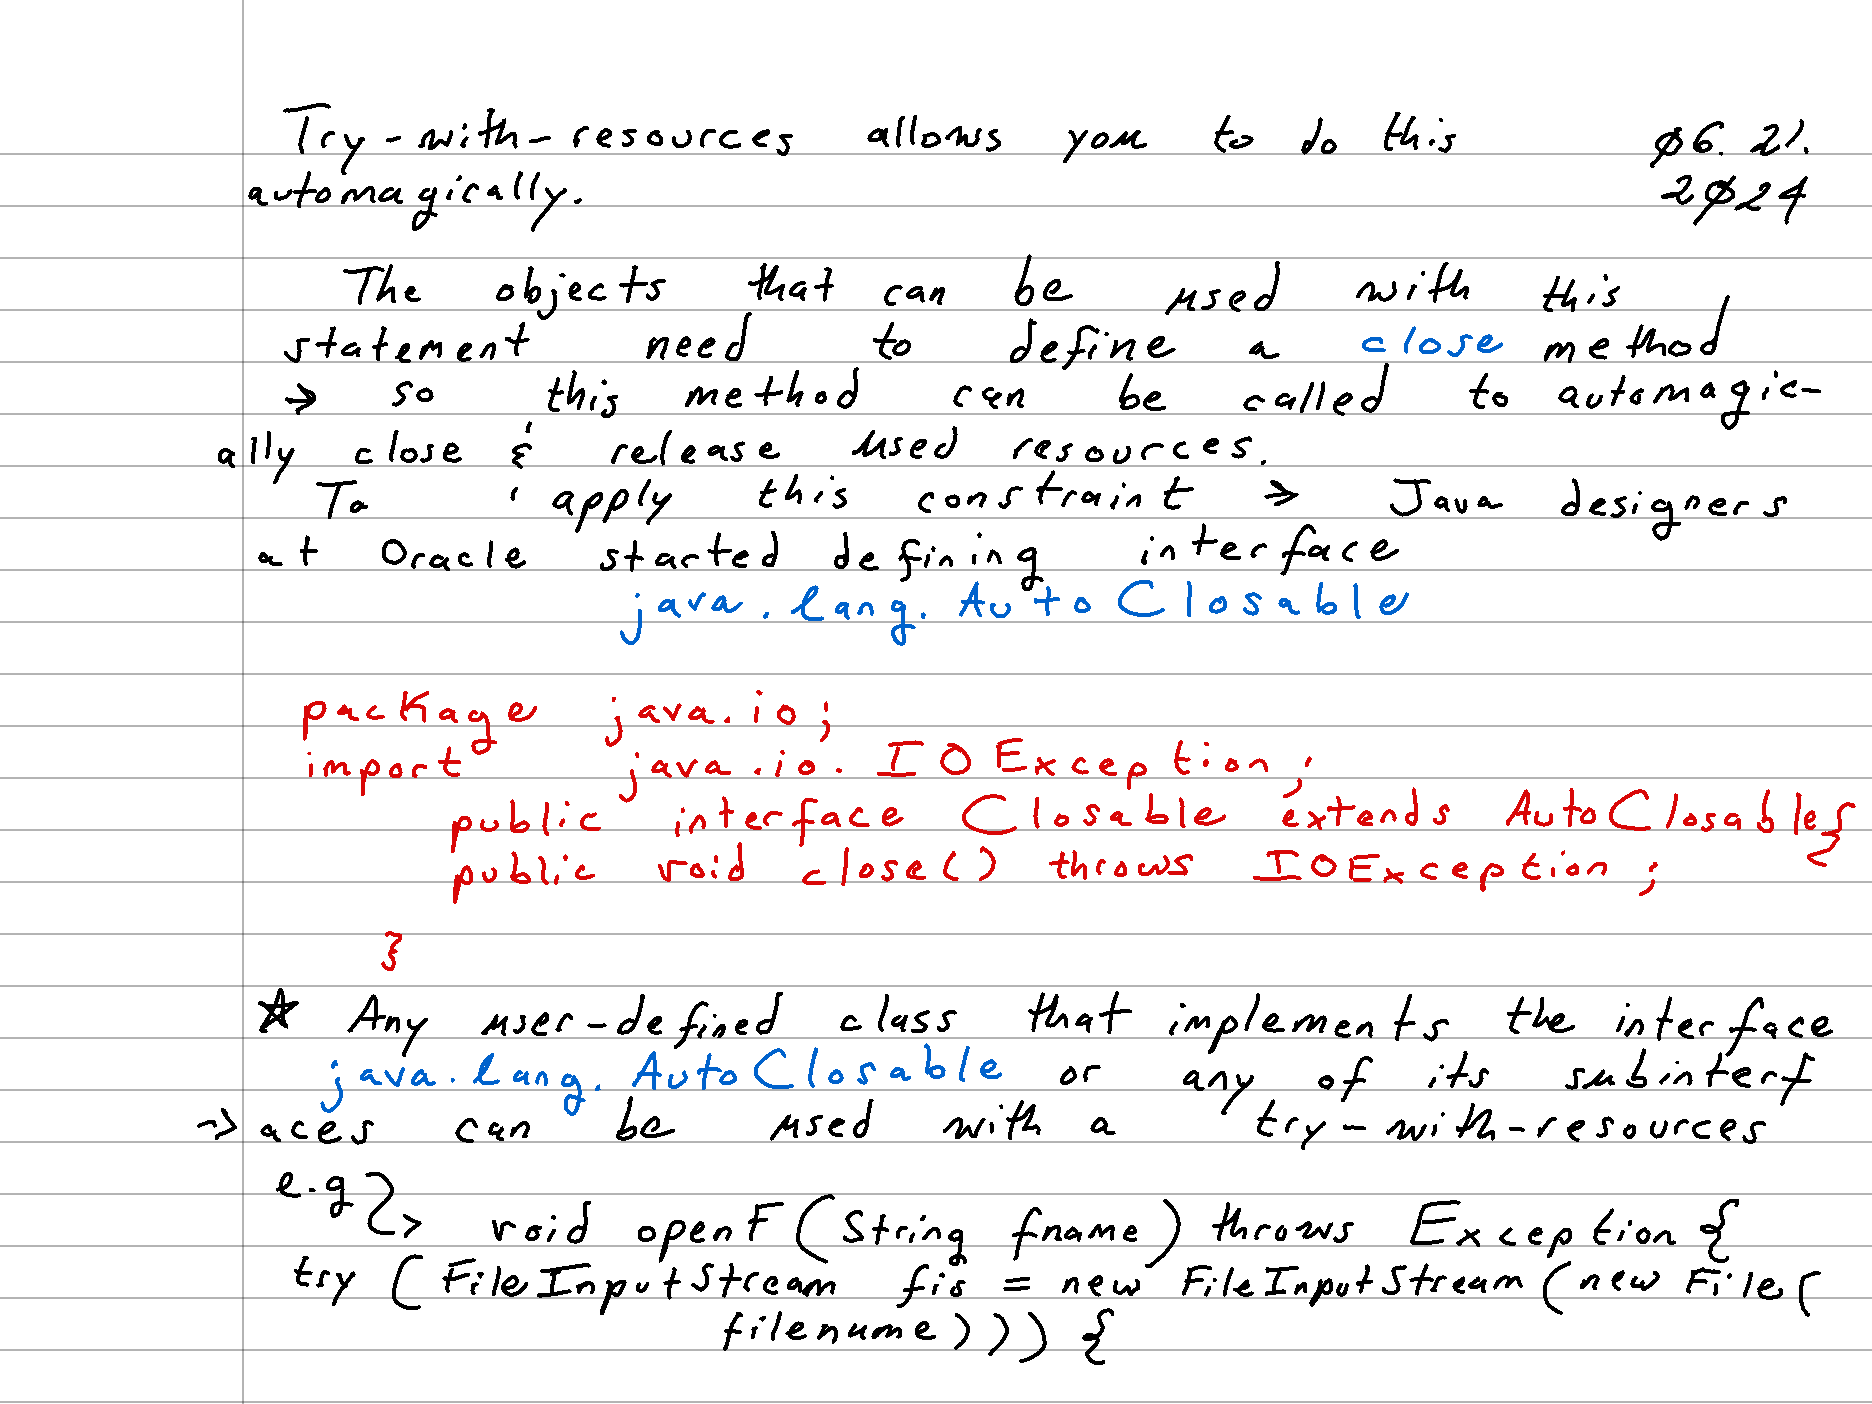 Try-with-resources allows you to do this 06.21.
automagically. 2024
The objects that can be used with this
statement need to define a close method
→ so this method can be called to automagic-
ally close & release used resources.
To apply this constraint → Java designers
at Oracle started defining interface
java.lang.AutoClosable
package java.io;
import java.io.IOException;
public interface Closable extends AutoClosable{
public void close() throws IOException;
}
☆ Any user-defined class that implements the interface
java.lang.AutoClosable or any of its subinterf
→ aces can be used with a try-with-resources
e.g → void openF(String fname) throws Exception {
try (FileInputStream fis = new FileInputStream(new File(
filename))) {